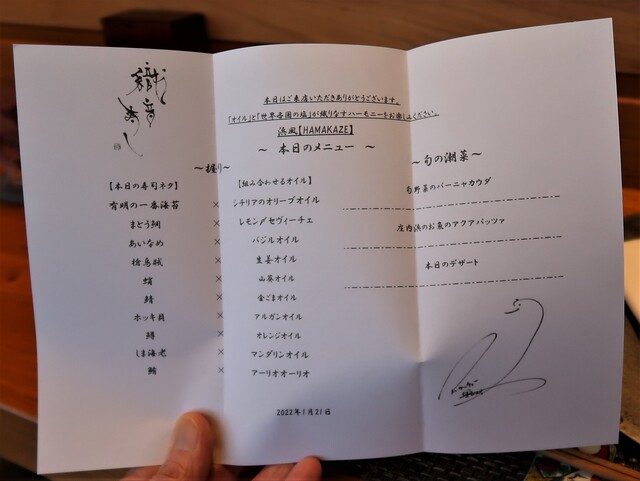 織音寿し
本日はご来店いただきありがとうございます。
「オイル」と「世界各国の塩」が織りなすハーモニーをお楽しみください。
浜風【HAMAKAZE】
～ 本日のメニュー ～
～握り～
【本日の寿司ネタ】 【組み合わせるオイル】
有明の一番海苔 × シチリアのオリーブオイル
まとう鯛 × レモン〆セヴィーチェ
あいなめ × バジルオイル
槍烏賊 × 生姜オイル
蛸 × 山葵オイル
鯖 × 金ごまオイル
ホッキ貝 × アルガンオイル
鱒 × オレンジオイル
しま海老 × マンダリンオイル
鮪 × アーリオオーリオ
2022年1月21日
～旬の潮菜～
旬野菜のバーニャカウダ
庄内浜のお魚のアクアパッツァ
本日のデザート